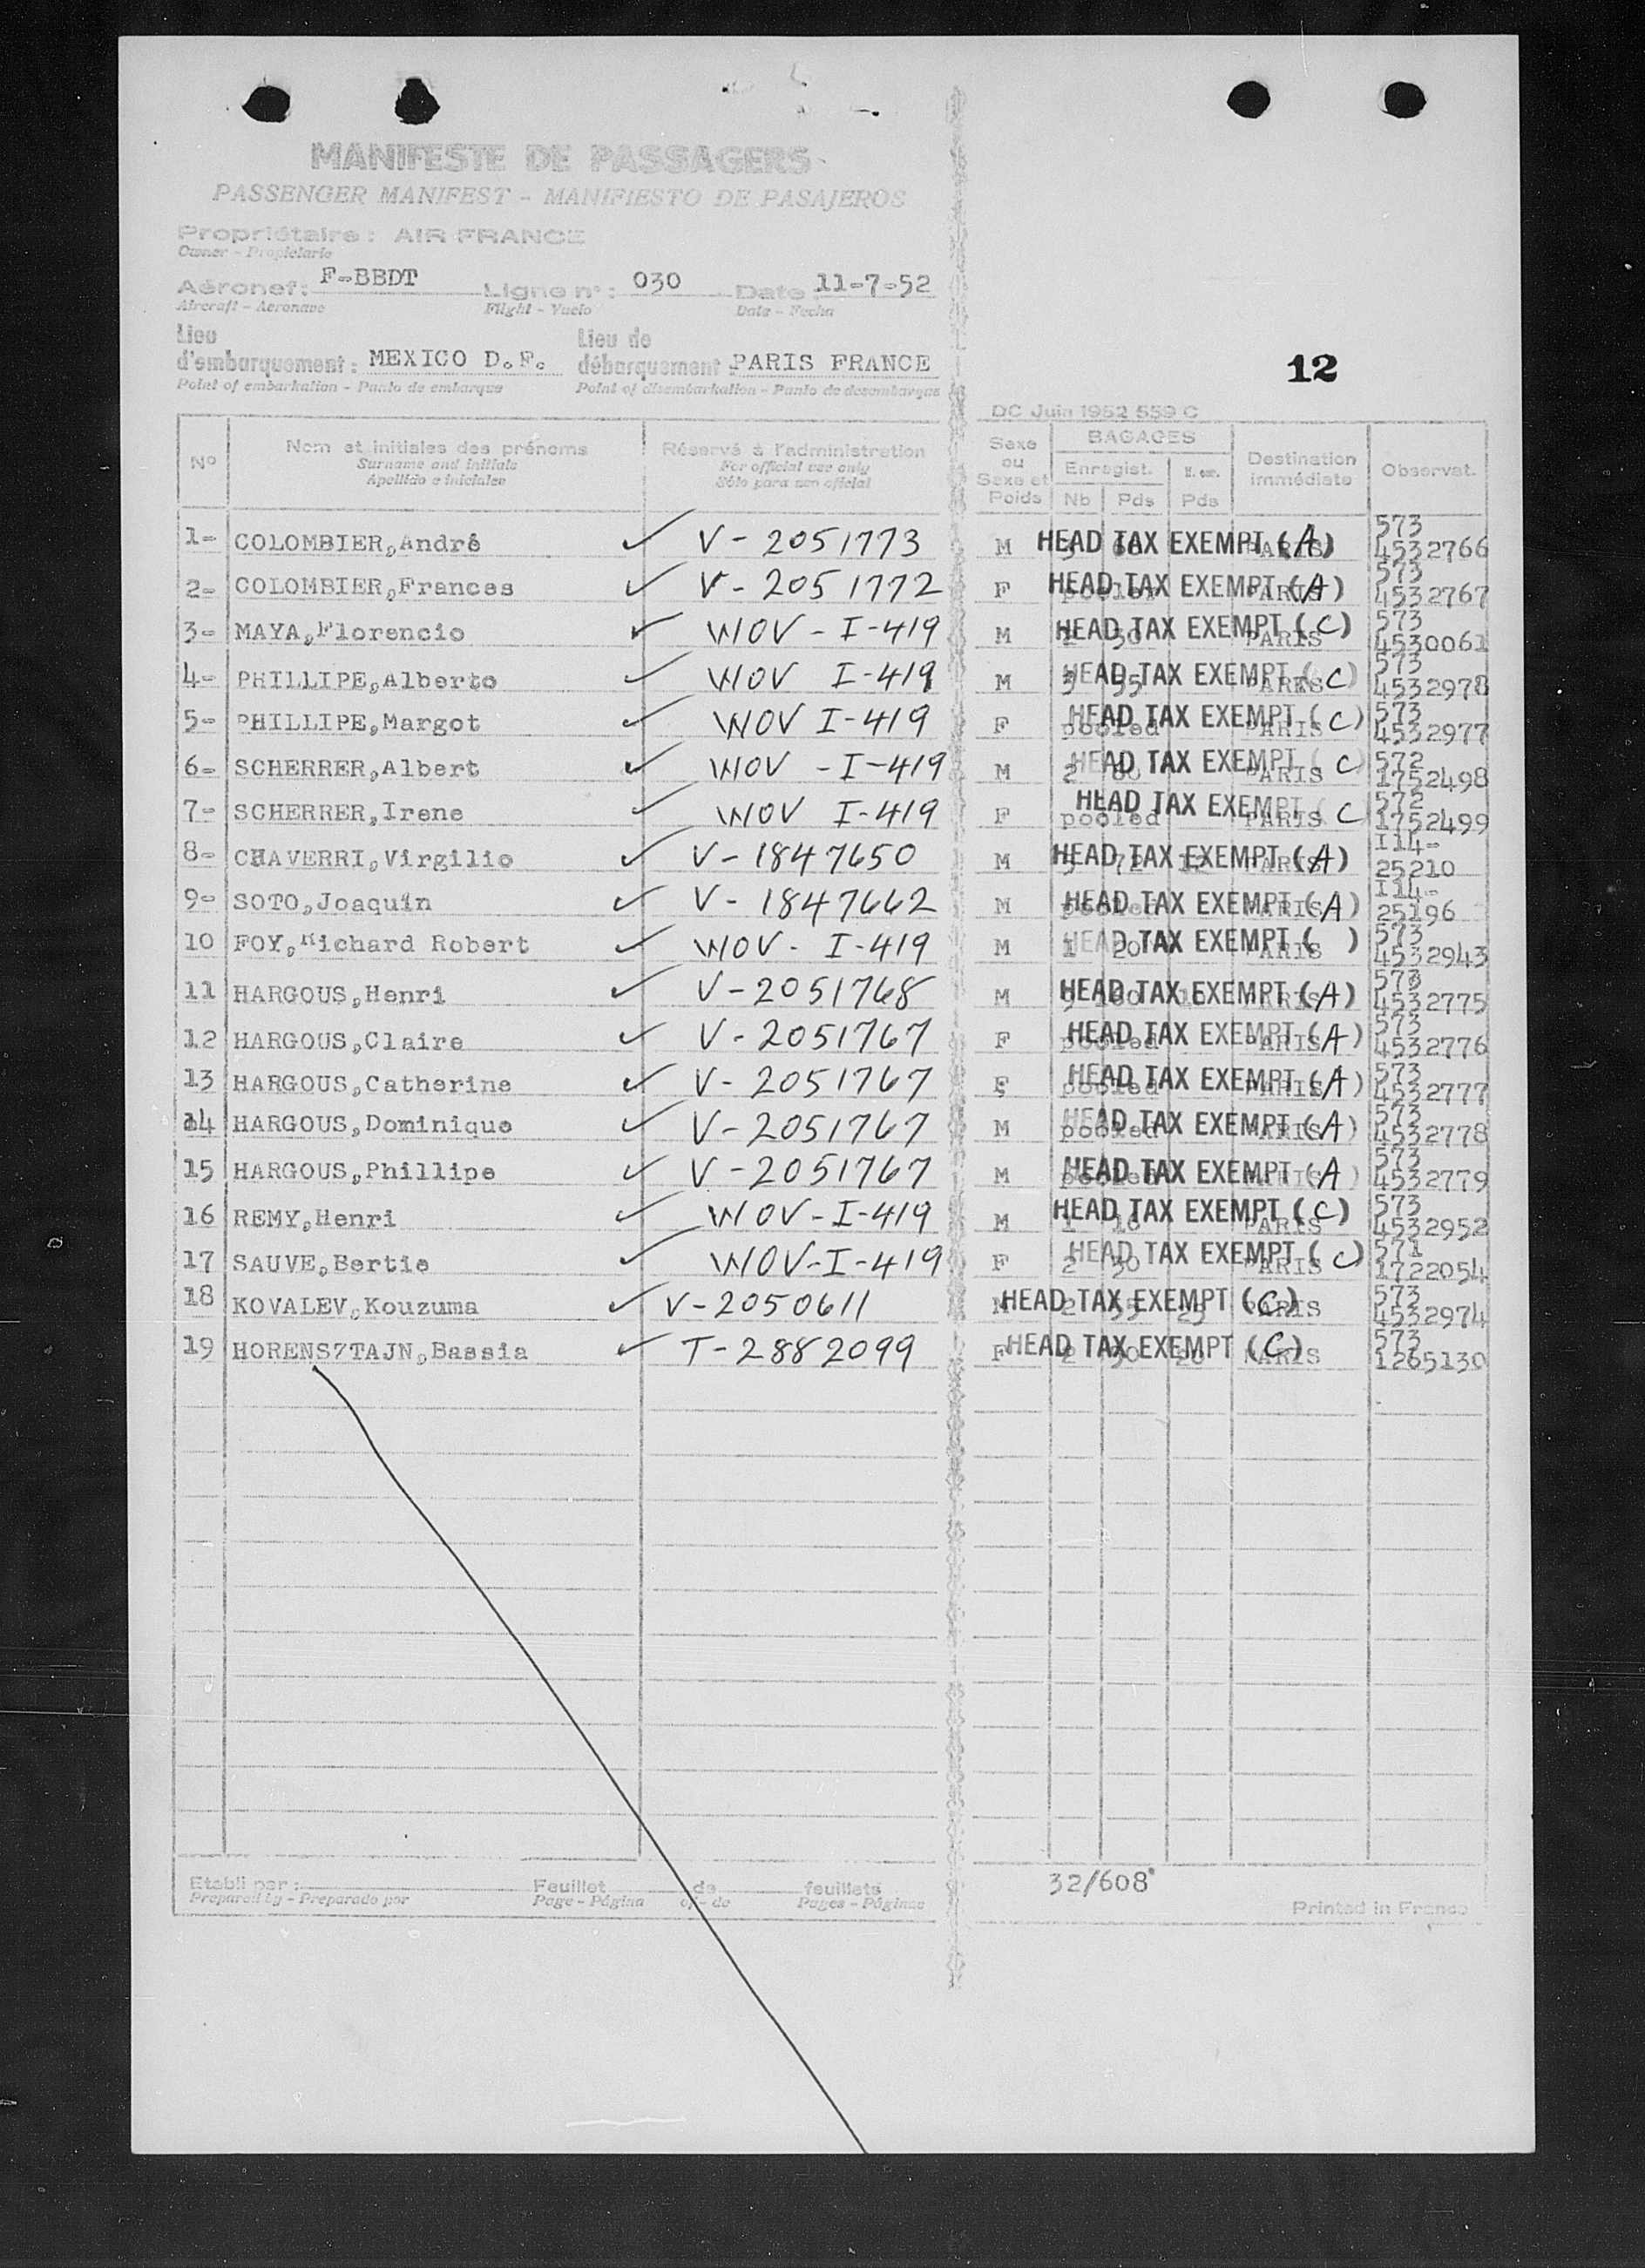 MANIFESTE DE PASSAGERS
PASSENGER MANIFEST - MANIFIESTO DE PASAJEROS
Propriétaire : AIR FRANCE
Owner - Propietario
Aéronef : F-BBDT Ligne n° : 030 Date : 11-7-52
Aircraft - Aeronave Flight - Vuelo Date - Fecha
Lieu d'embarquement : MEXICO D.F. Lieu de débarquement : PARIS FRANCE
Point of embarkation - Punto de embarque Point of disembarkation - Punto de desembarque
12
DC Juin 1952 559 C
N° Nom et initiales des prénoms Réservé à l'administration Sexe ou Sexe et Poids BAGAGES Destination immédiate Observat.
Surname and initials For official use only Enregist.
Apellido e iniciales Sólo para uso oficial Nb Pds Pds
1- COLOMBIER,André ✓ V - 2051773 M HEAD TAX EXEMPT (A) PARIS 573 4532766
2- COLOMBIER,Frances ✓ V - 2051772 F HEAD TAX EXEMPT (A) PARIS 573 4532767
3- MAYA,Florencio ✓ WOV - I-419 M HEAD TAX EXEMPT (C) PARIS 573 4530061
4- PHILLIPE,Alberto ✓ WOV I-419 M HEAD TAX EXEMPT (C) PARIS 573 4532978
5- PHILLIPE,Margot ✓ WOV I-419 F pooled HEAD TAX EXEMPT (C) PARIS 573 4532977
6- SCHERRER,Albert ✓ WOV - I-419 M 2 HEAD TAX EXEMPT (C) PARIS 572 1752498
7- SCHERRER,Irene ✓ WOV I-419 F pooled HEAD TAX EXEMPT (C PARIS 572 1752499
8- CHAVERRI,Virgilio ✓ V - 1847650 M HEAD TAX EXEMPT (A) PARIS I14- 25210
9- SOTO,Joaquin ✓ V - 1847662 M HEAD TAX EXEMPT (A) PARIS I14- 25196
10 FOY,Richard Robert ✓ WOV - I-419 M 1 20 HEAD TAX EXEMPT ( ) PARIS 573 4532943
11 HARGOUS,Henri ✓ V-2051768 M HEAD TAX EXEMPT (A) PARIS 573 4532775
12 HARGOUS,Claire ✓ V - 2051767 F pooled HEAD TAX EXEMPT (A) PARIS 573 4532776
13 HARGOUS,Catherine ✓ V - 2051767 F pooled HEAD TAX EXEMPT (A) PARIS 573 4532777
14 HARGOUS,Dominique ✓ V-2051767 M pooled HEAD TAX EXEMPT (A) PARIS 573 4532778
15 HARGOUS,Phillipe ✓ V - 2051767 M pooled HEAD TAX EXEMPT (A ) PARIS 573 4532779
16 REMY,Henri ✓ WOV-I-419 M HEAD TAX EXEMPT (C) PARIS 573 4532952
17 SAUVE,Bertie ✓ WOV-I-419 F 2 30 HEAD TAX EXEMPT (C) PARIS 571 1722054
18 KOVALEV,Kouzuma ✓ V-2050611 M HEAD TAX EXEMPT (C) 2 PARIS 573 4532974
19 HORENSZTAJN,Bassia ✓ T-2882099 F HEAD TAX EXEMPT (C) 2 PARIS 573 1265130
Etabli par : Feuillet de feuillets 32/608
Prepared by - Preparado por Page - Página of - de Pages - Páginas Printed in France